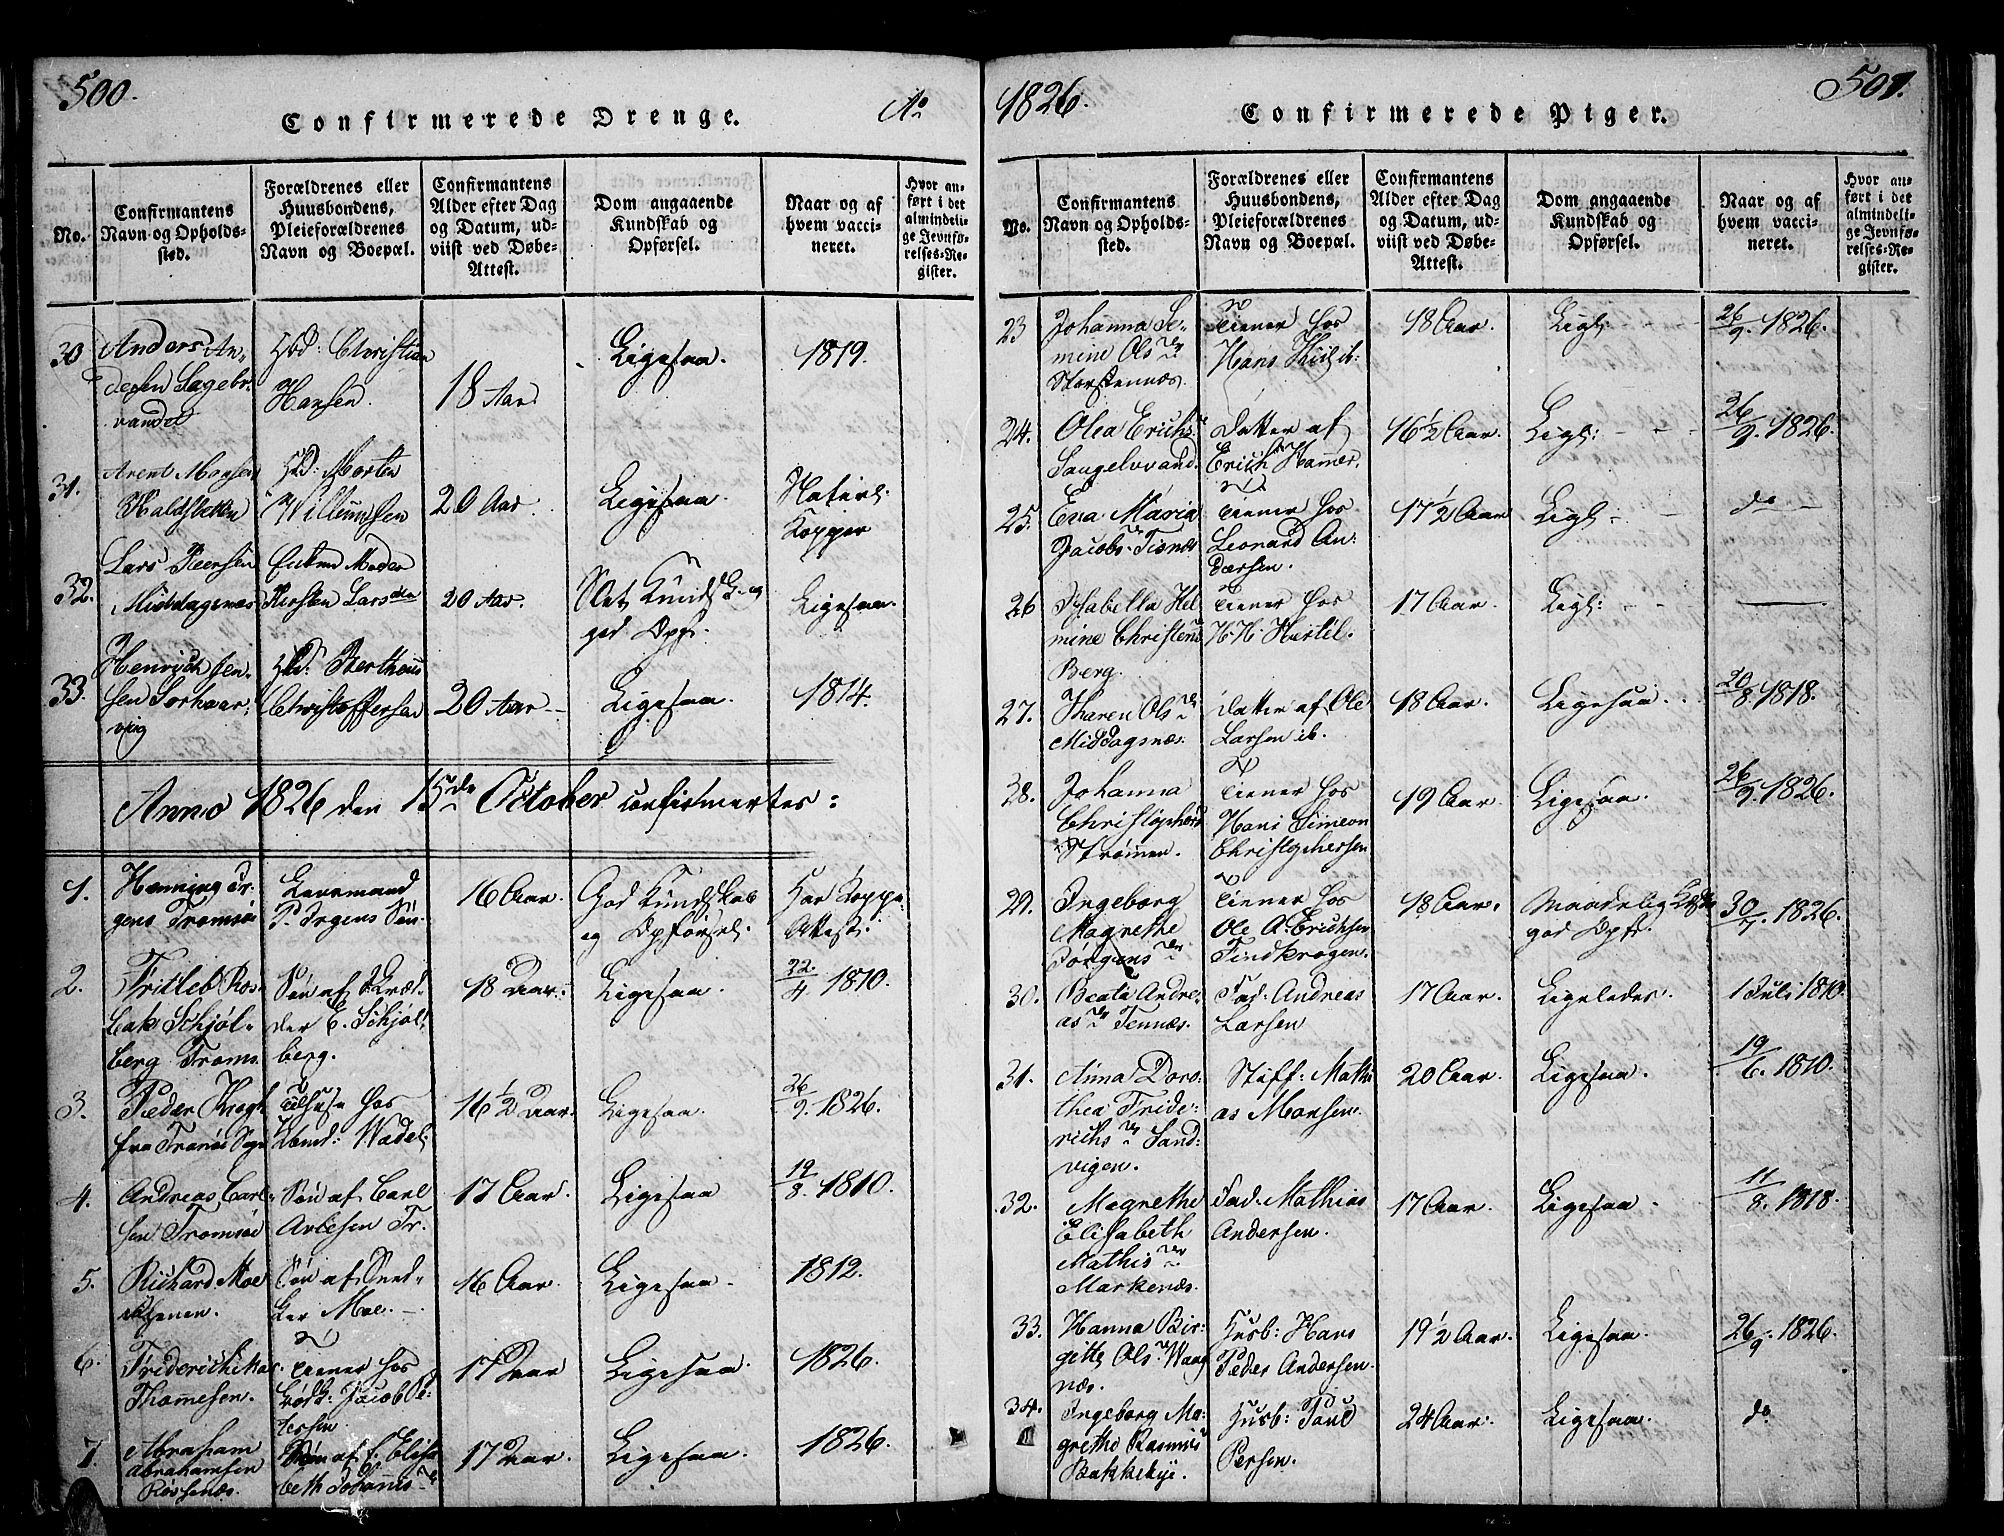 500.
Confirmerede Drenge.
Ao
No.
Confirmantens
Navn og Opholds-
sted.
Forældrenes eller
Huusbondens,
Pleieforældrenes
Navn og Boepæl.
Confirmantens
Alder efter Dag
og Datum, ud-
viist ved Døbe-
Attest.
Dom angaaende
Kundskab og
Opførsel.
Naar og af
hvem vacci-
neret.
Hvor an-
ført i det
almindeli-
ge Jevnfø-
relses-Re-
gister.
30
Anders An-
dersen
vandet
Hbd: Christian
Hansen.
18 Aar
Ligesaa.
1819.
31.
Arent Monsen
Hbd: Morten
Willumsen
20 Aar.
Ligesaa.
Naturl.
Kopper
32.
Lars Peersen
Middagsnæs
Enken Moder
Kirsten Larsdtr
20 Aar.
Slet Kundsk. og
god Opf.
Ligesaa.
33.
Henrich Jen-
sen
vig
Hbd: Bertheus
Christoffersen
20 Aar
Ligesaa.
1814.
Anno 1826 den 15de October confirmertes:
1.
Henning Ir-
gens Tromsöe
Lensmand
P. Irgens Sön
16 Aar.
God Kundskab
og Opförsel.
Har Koppe
Attest.
2.
Fritleb Ros-
bak Schjöl-
berg Troms.
Sön af
der E. Schjöl-
berg.
18 Aar.
Ligesaa.
22/4 1810.
3.
Peder Krogh
fra Tranöe Sogn
Tilhuse hos
Wadel
16 1/2 Aar.
Ligesaa.
26/9. 1826.
4.
Andreas Carl-
sen Tromsöe
Sön af Carl
Arlesen Tr.
17 Aar.
Ligesaa
19/8. 1810.
5.
Richard Moe
Sön af Sned-
ker Moe.
16 Aar.
Ligesaa.
1812.
6.
Friderich
Thomesen.
tiener hos
Jacob Pe-
tersen
17 Aar
Ligesaa.
1826.
7.
Abraham
Abrahamsen
Sön af Elisa
beth Johannis
17 Aar.
Ligesaa
1826.
1826.
Confirmerede Piger.
501.
No.
Confirmantens
Navn og Opholds-
sted.
Forældrenes eller
Huusbondens,
Pleieforældrenes
Navn og Boepæl.
Confirmantens
Alder efter Dag
og Datum, ud-
viist ved Døbe-
Attest.
Dom angaaende
Kundskab og
Opførsel.
Naar og af
hvem vacci-
neret.
Hvor an-
ført i det
almindeli-
ge Jevnfø-
relses-Re-
gister.
23
Johanna Je-
mine Ols
Storstennæs.
tiener hos
Hans ib.
18 Aar.
Ligl:
26/9. 1826.
24.
Olea Erichs
Datter af
Erich Hammer.
16 1/2 Aar.
Ligl:
26/9. 1826.
25.
Eva Maria
Jacobs. Tisnæs
tiener hos
Leonard An-
dersen.
17 1/2 Aar
Ligl:
do
26
Isabella Hel
mine Christens
Berg.
tiener hos
H. H.
17 Aar.
Ligl:
27.
Karen Ols
Middagsnæs.
Datter af Ole
Larsen ib.
18 Aar.
Ligesaa.
20/8. 1818.
28.
Johanna
Christophers
Strömmen.
tiener hos
Hans Simeon
Christophersen
19 Aar.
Ligesaa.
26/9. 1826.
29.
Ingeborg
Magrethe
Jörgens
tiener hos
Ole A. Erichsen
Findkrogen.
18 Aar.
Maadelig
god Opf.
30/7. 1826.
30.
Beata Andre-
as Tennæs.
Fad: Andreas
Larsen
17 Aar.
Ligeledes.
1 Juli 1810.
31.
Anna Doro-
thea Fride-
richs Sand-
vigen.
Stiff: Mathi
as Monsen.
20 Aar.
Ligesaa.
19/6. 1810.
32.
Magrethe
Elisabeth
Mathis
Markenæs.
Fad: Mathias
Andersen.
17 Aar.
Ligesaa.
11/8. 1818.
33.
Hanna Bir-
gitte Ols.
næs.
Husb: Hans
Peder Andersen.
19 1/2 Aar.
Ligesaa.
26/9. 1826.
34.
Ingeborg Ma-
grethe Rasmus
Bakkebye.
Husb: Paul
Persen.
24 Aar.
Ligesaa.
do